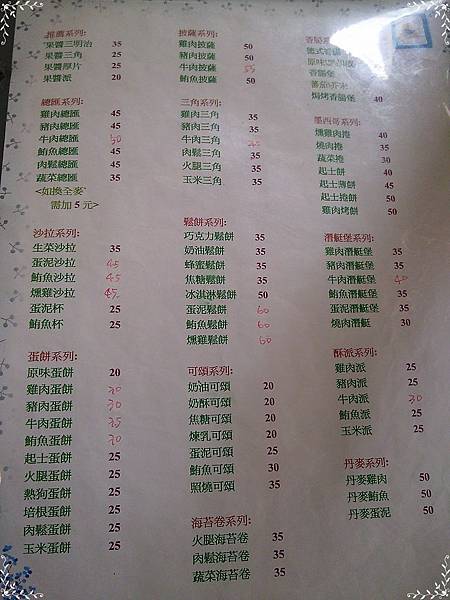 推薦系列:
果醬三明治 35
果醬三角 25
果醬厚片 25
果醬派 20
總匯系列:
雞肉總匯 45
豬肉總匯 45
牛肉總匯 50
鮪魚總匯 45
肉鬆總匯 45
蔬菜總匯 35
<如換全麥
需加 5 元>
沙拉系列:
生菜沙拉 35
蛋泥沙拉 45
鮪魚沙拉 45
燻雞沙拉 45
蛋泥杯 25
鮪魚杯 25
蛋餅系列:
原味蛋餅 20
雞肉蛋餅 30
豬肉蛋餅 30
牛肉蛋餅 35
鮪魚蛋餅 30
起士蛋餅 25
火腿蛋餅 25
熱狗蛋餅 25
培根蛋餅 25
肉鬆蛋餅 25
玉米蛋餅 25
披薩系列:
雞肉披薩 50
豬肉披薩 50
牛肉披薩 55
鮪魚披薩 50
三角系列:
雞肉三角 35
豬肉三角 35
牛肉三角
鮪魚三角 35
肉鬆三角 35
火腿三角 35
玉米三角 35
鬆餅系列:
巧克力鬆餅 35
奶油鬆餅 35
蜂蜜鬆餅 35
焦糖鬆餅 35
冰淇淋鬆餅 50
蛋泥鬆餅 60
鮪魚鬆餅 60
燻雞鬆餅 60
可頌系列:
奶油可頌 20
奶酥可頌 20
焦糖可頌 20
煉乳可頌 20
蛋泥可頌 25
鮪魚可頌 30
照燒可頌 35
海苔卷系列:
火腿海苔卷 35
肉鬆海苔卷 35
蔬菜海苔卷 35
香腸系列:
德式香腸
原味
香腸堡
蕃茄
焗烤香腸堡 40
墨西哥系列:
燻雞肉捲 40
燒肉捲 35
蔬菜捲 30
起士餅 40
起士薄餅 45
起士捲餅 50
雞肉烤餅 50
潛艇堡系列:
雞肉潛艇堡 35
豬肉潛艇堡 35
牛肉潛艇堡 40
鮪魚潛艇堡 35
蛋泥潛艇堡 35
燒肉潛艇 30
酥派系列:
雞肉派 25
豬肉派 25
牛肉派 30
鮪魚派 25
玉米派 25
丹麥系列:
丹麥雞肉 50
丹麥鮪魚 50
丹麥蛋泥 50